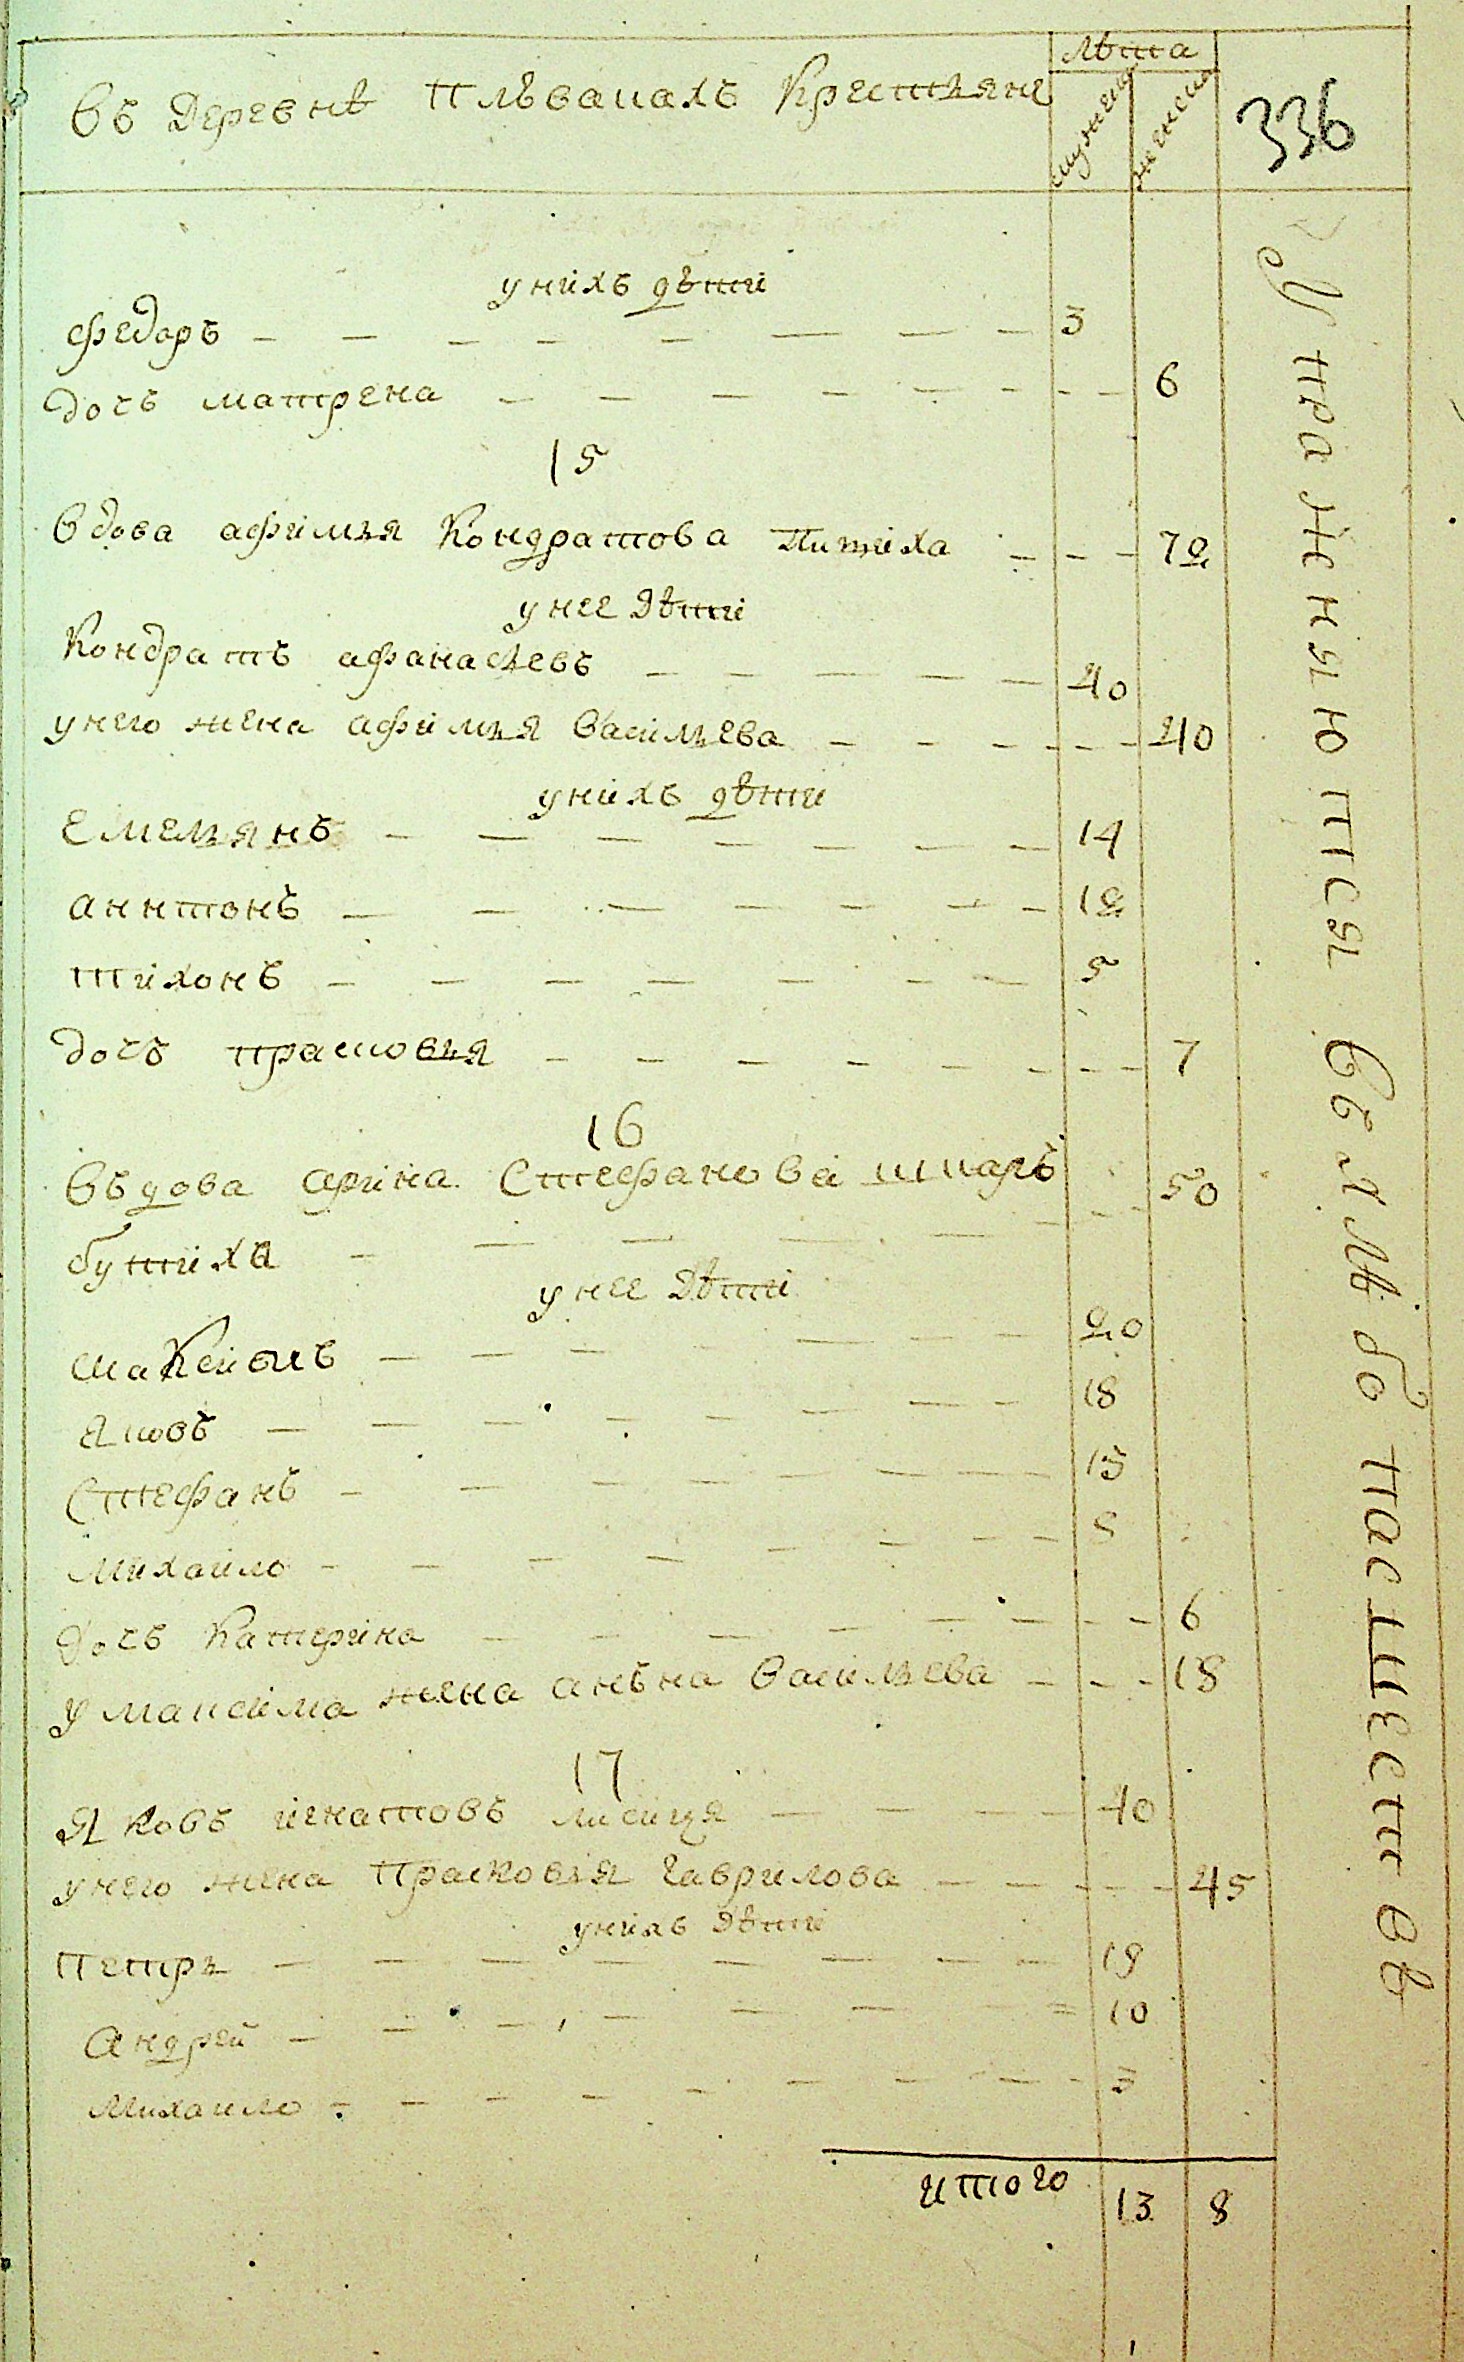 лѣта
въ деревнѣ Плѣванахъ Крестьяне
мужеска
женска
336
у нихъ дѣти
Федоръ 3
дочь матрена 6
15
вдова афимья Кондратова 72
у нее дѣти
Кондратъ афанасьевъ 40
у него жена афимья Васильева 40
у нихъ дѣти
Емельянъ 14
антонъ 12
тихонъ 5
дочь прасковья 7
16
въдова арина Стефанова шкарь 50
бутиха
у нее дѣти
макси
яковъ 18
Стефанъ 15
михаило 5
дочь Катерина 6
у максима жена анъна Васильева 18
17
Яковъ игнатовъ лисица 40
у него жена Прасковья гаврилова 45
у нихъ дѣти
Петръ 19
Андрей 10
михаило 3
итого 13 8